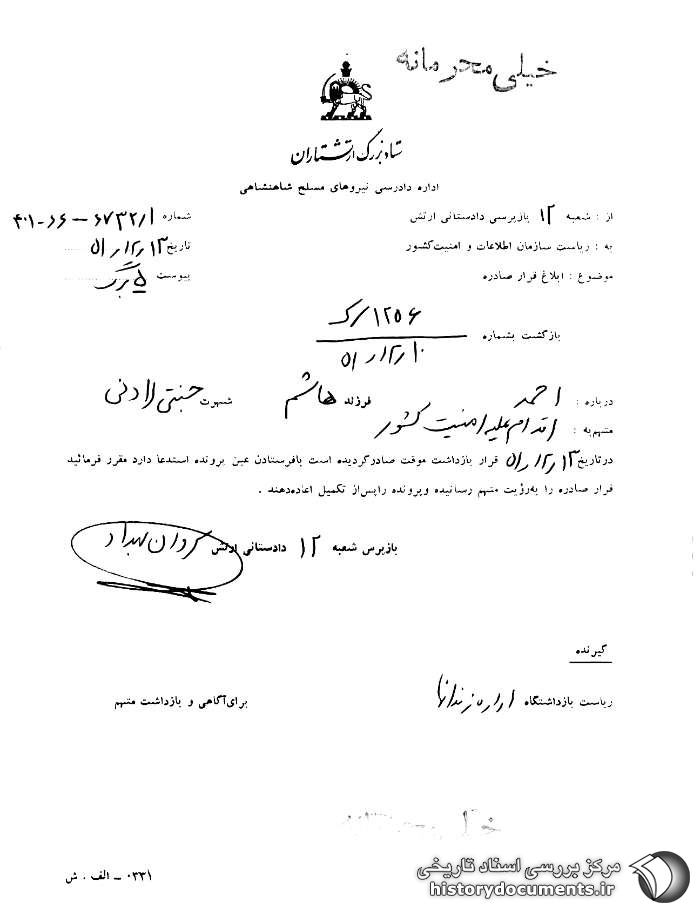 خیلی محرمانه
ستاد بزرگ ارتشتاران
اداره دادرسی نیروهای مسلح شاهنشاهی
از : شعبه ۱۲ بازپرسی دادستانی ارتش
شماره ۴۰۱-۱۶-۶۷۳۲/۱
به : ریاست سازمان اطلاعات و امنیت کشور
تاریخ ۵۱/۱۲/۱۳
موضوع : ابلاغ قرار صادره
پیوست ۵ برگ
بازگشت بشماره
۱۲۵۶/ک
۵۱/۱۲/۱۰
درباره : احمد فرزند هاشم شهرت جنتی لادنی
متهم به : اقدام علیه امنیت کشور
در تاریخ ۵۱/۱۲/۱۳ قرار بازداشت موقت صادر گردیده است بافرستادن عین پرونده استدعا دارد مقرر فرمائید
قرار صادره را به‌رؤیت متهم رسانیده وپرونده راپس‌از تکمیل اعاده‌دهند .
بازپرس شعبه ۱۲ دادستانی ارتش
گیرنده
ریاست بازداشتگاه اداره زندانها
برای‌آگاهی و بازداشت متهم
۰۳۳۱ – الف . ش
مرکز بررسی اسناد تاریخی
historydocuments.ir